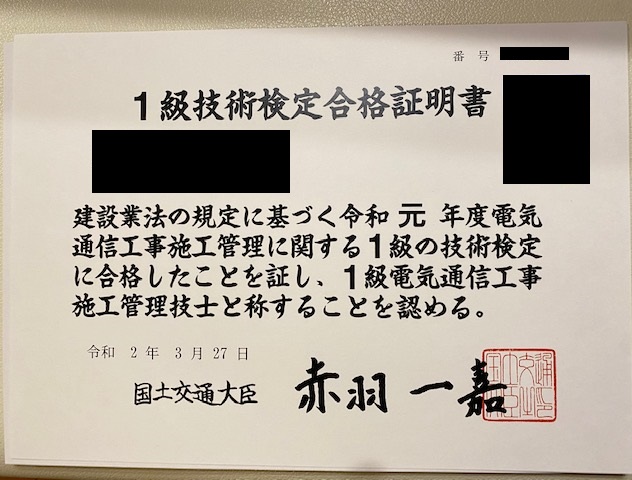 番 号
1級技術検定合格証明書
建設業法の規定に基づく令和 元 年度電気
通信工事施工管理に関する1級の技術検定
に合格したことを証し、1級電気通信工事
施工管理技士と称することを認める。
令和 2 年 3 月 27 日
国土交通大臣 赤羽 一嘉